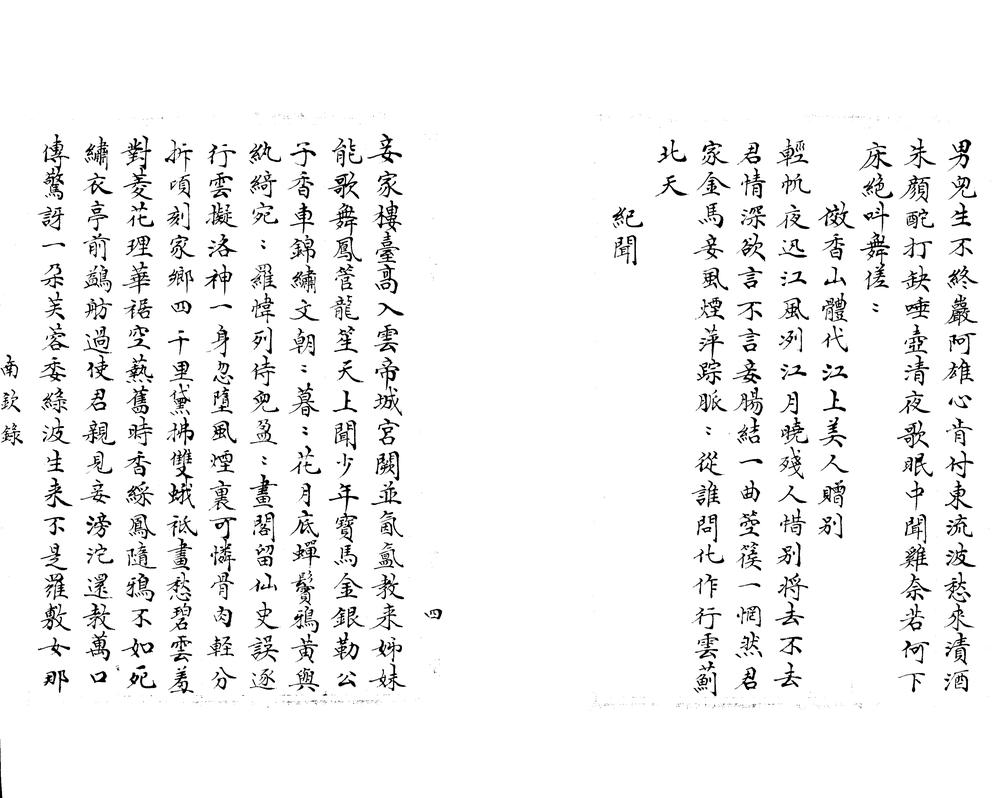 男兒生不終巖阿雄心肯付東流波愁來漬酒
朱顏酡打缺唾壺清夜歌眠中聞雞奈若何下
床絕叫舞傞：
倣香山體代江上美人贈別
輕帆夜迅江風冽江月曉殘人惜別將去不去
君情深欲言不言妾腸結一曲箜篌一惘然君
家金馬妾風煙萍踪脈：從誰問化作行雲薊
北天
紀聞
妾家樓臺高入雲帝城宮闕並氤氳教来姊妹
能歌舞鳳管龍笙天上聞少年寶馬金銀勒公
子香車錦繡文朝：暮：花月底蟬鬢鴉黃與
紈綺宛：羅幃列侍兒盈：畫閣留仙史誤逐
行雲擬洛神一身忽墮風煙裏可憐骨肉輕分
拆頃刻家鄉四千里黛拂雙蛾祗畫愁碧雲羞
對菱花理華裾空爇舊時香綵鳳隨鴉不如死
繡衣亭前鷁舫過使君親見妾滂沱還教萬口
傳驚訝一朵芙蓉委綠波生来不是羅敷女那
四
南欽錄